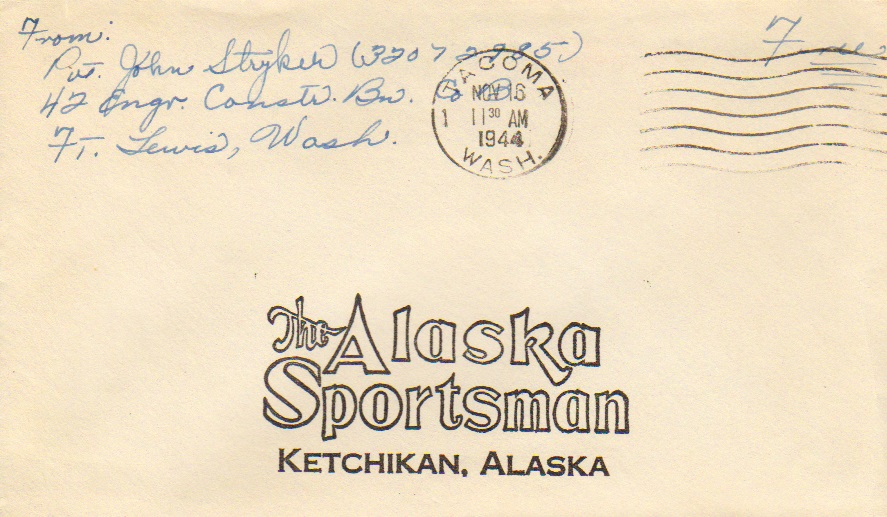 From:
Pvt. John Stryker (32072985)
42 Engr. Constr. Bn. Co
Ft. Lewis, Wash.
TACOMA
NOV 16
1 11 30 AM
1944
WASH.
Free
The Alaska
Sportsman
KETCHIKAN, ALASKA